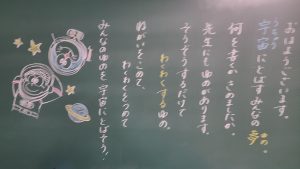 おはようございます。
宇宙にとばすみんなの夢
ゆめ。
何を書くか きめましたか。
先生にもゆめがあります。
そうぞうするだけで
わくわくするゆめ。
ねがいをこめて、
わくわくをつめて
みんなのゆめを、宇宙にとばそう!